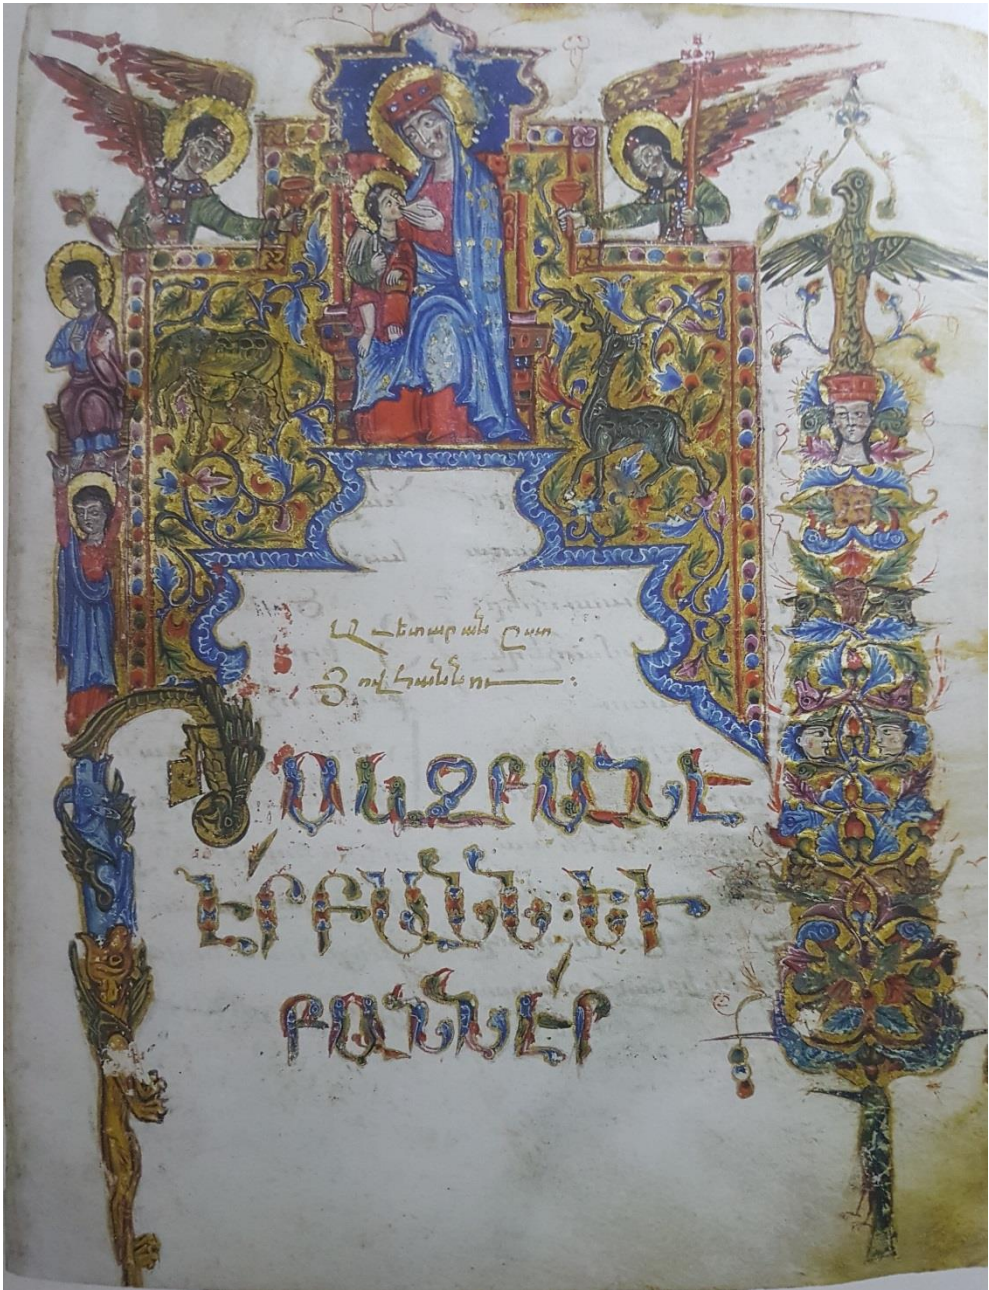 Աւետարան ըստ
Յովհաննու:
Ի ՍԿԶԲԱՆԷ
ԷՐ ԲԱՆՆ: ԵՒ
ԲԱՆՆ ԷՐ